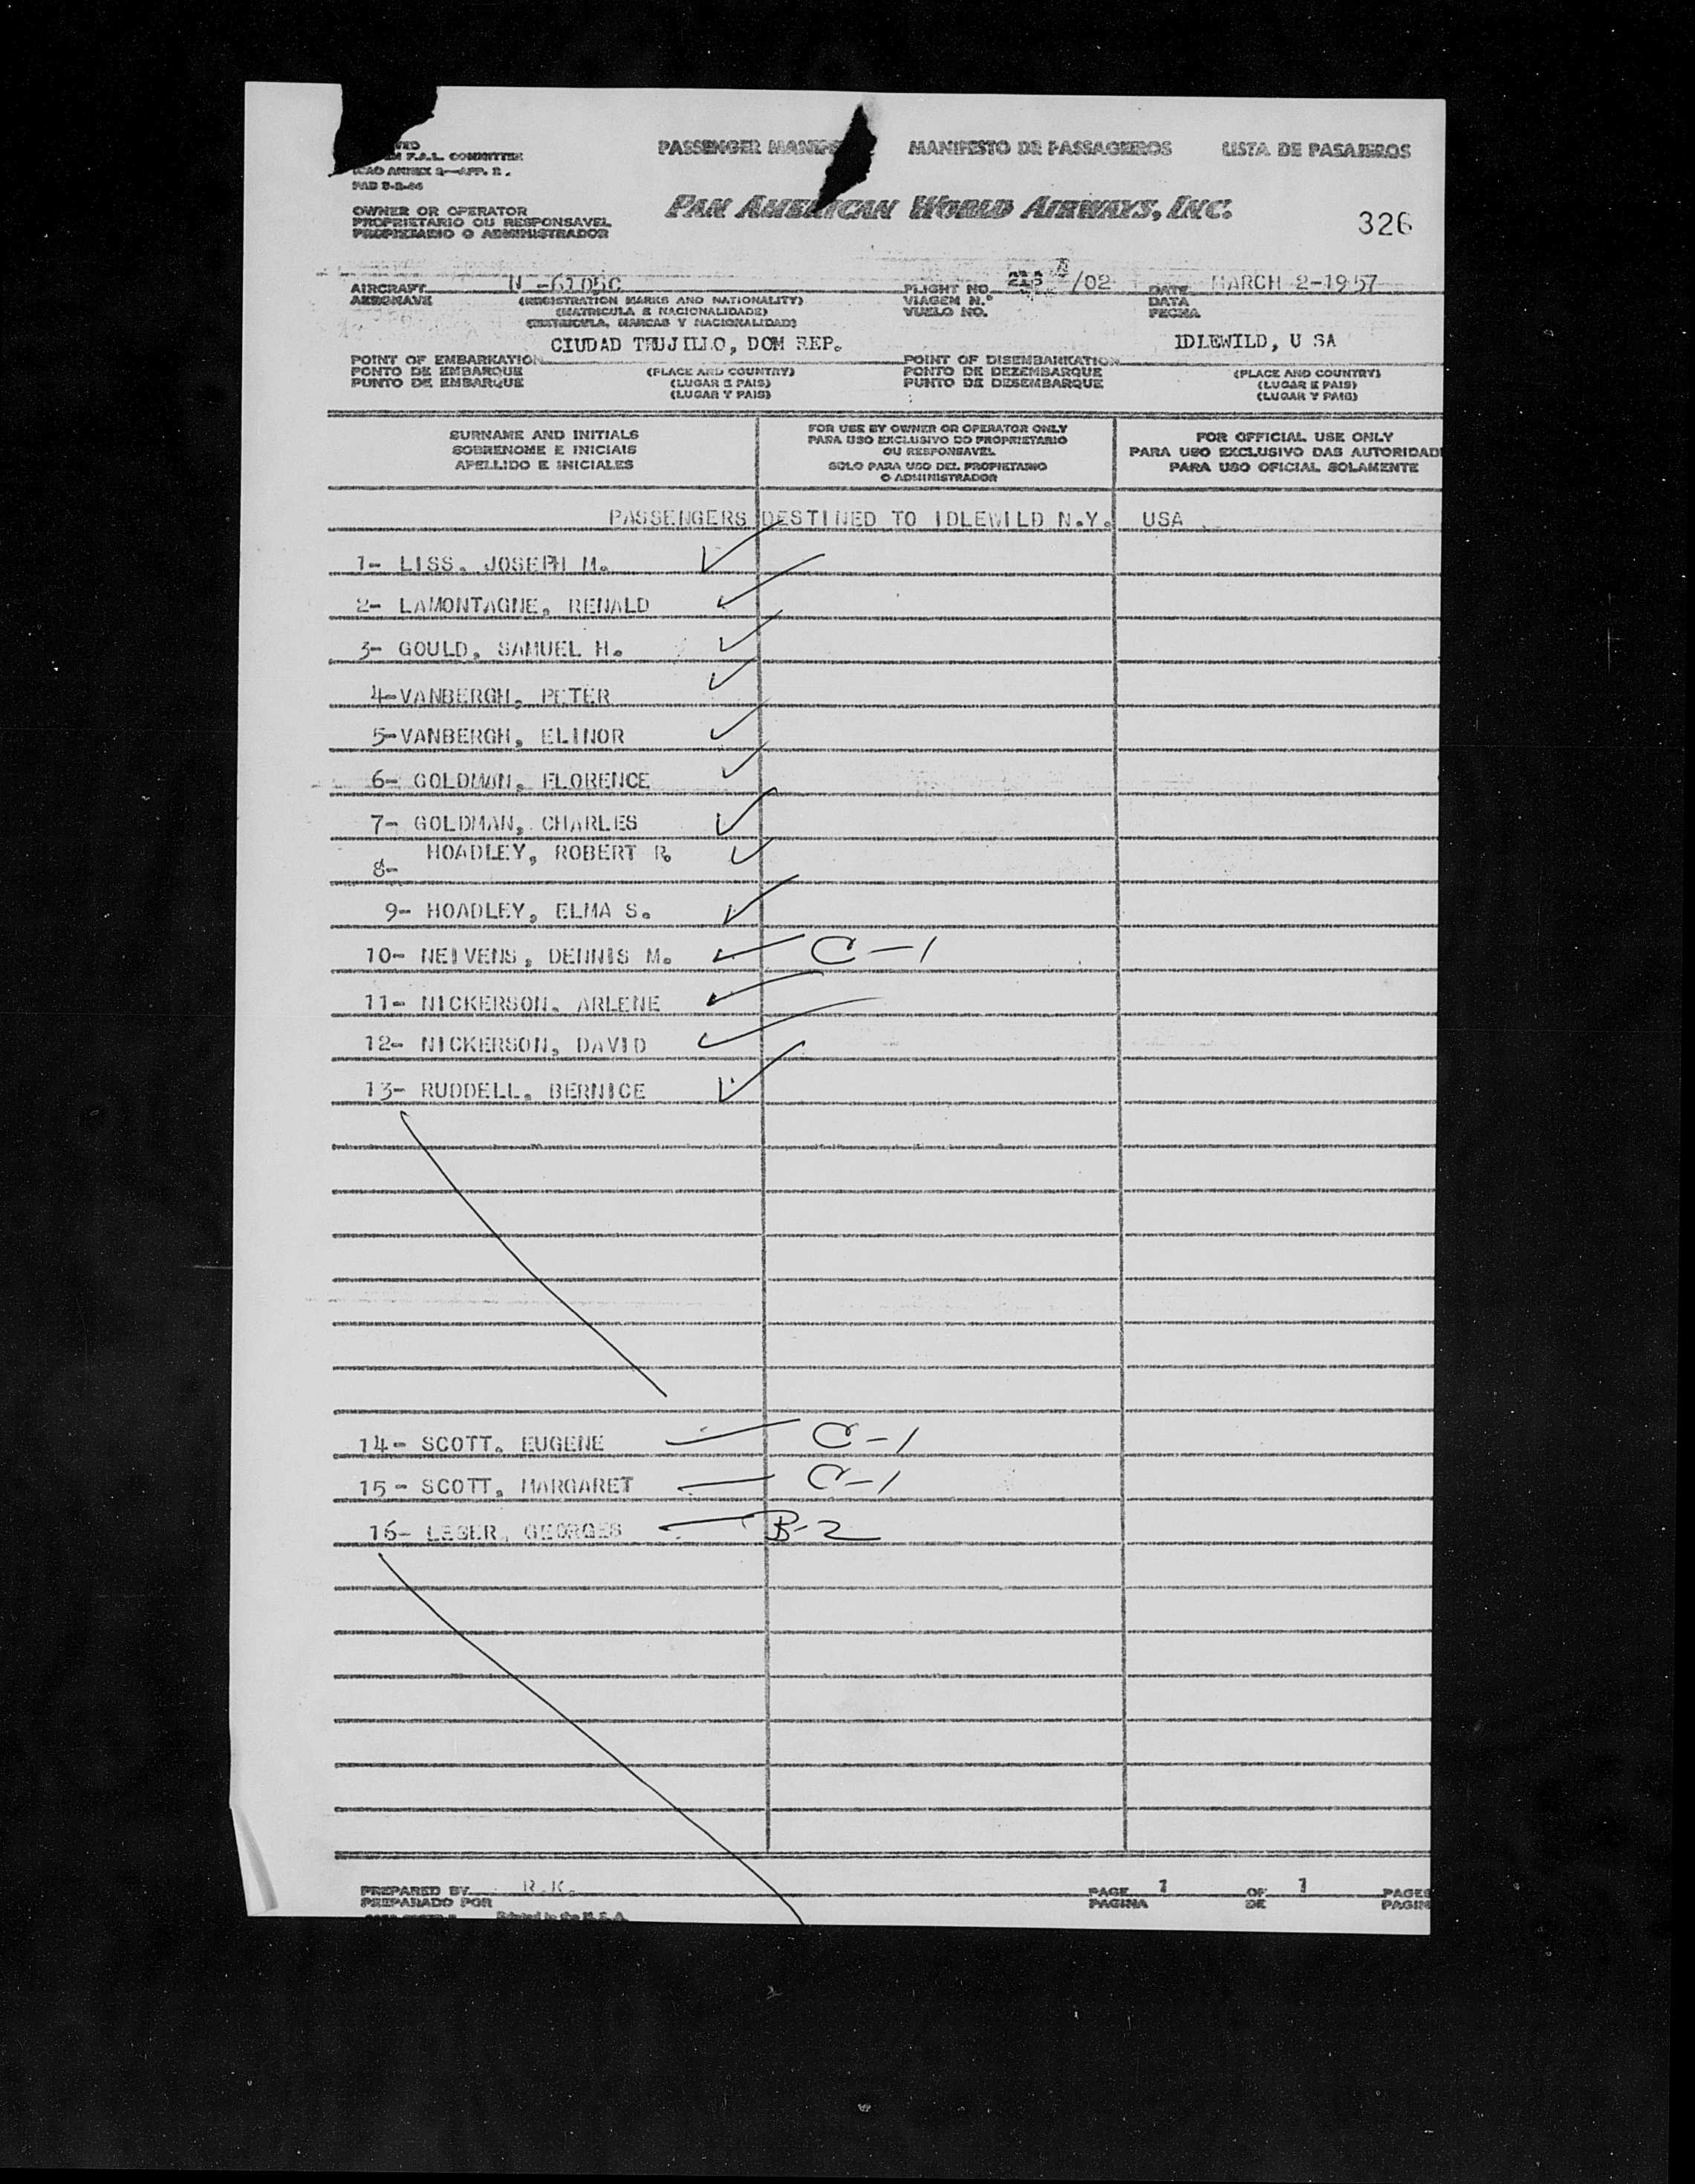 PASSENGER MANIFE MANIFESTO DE PASSAGEIROS LISTA DE PASAJEROS
F.A.L. COMMITTEE
ICAO ANNEX 9—APP. 2.
PAN AMERICAN WORLD AIRWAYS, INC.
326
OWNER OR OPERATOR
PROPRIETARIO OU RESPONSAVEL
PROPIETARIO O ADMINISTRADOR
AIRCRAFT N -6105C FLIGHT NO. /02 DATE MARCH 2-1957
AERONAVE (REGISTRATION MARKS AND NATIONALITY) VIAGEM N.º DATA
(MATRICULA E NACIONALIDADE) VUELO NO. FECHA
(MATRICULA, MARCAS Y NACIONALIDAD)
CIUDAD TRUJILLO, DOM REP. IDLEWILD, U SA
POINT OF EMBARKATION POINT OF DISEMBARKATION
PONTO DE EMBARQUE (PLACE AND COUNTRY) PONTO DE DEZEMBARQUE (PLACE AND COUNTRY)
PUNTO DE EMBARQUE (LUGAR E PAIS) PUNTO DE DESEMBARQUE (LUGAR E PAIS)
(LUGAR Y PAIS) (LUGAR Y PAIS)
SURNAME AND INITIALS
SOBRENOME E INICIAIS
APELLIDO E INICIALES
FOR USE BY OWNER OR OPERATOR ONLY
PARA USO EXCLUSIVO DO PROPRIETARIO
OU RESPONSAVEL
SOLO PARA USO DEL PROPIETARIO
O ADMINISTRADOR
FOR OFFICIAL USE ONLY
PARA USO EXCLUSIVO DAS AUTORIDAD
PARA USO OFICIAL SOLAMENTE
PASSENGERS DESTINED TO IDLEWILD N.Y. USA
1- LISS, JOSEPH M.
2- LAMONTAGNE, RENALD
3- GOULD, SAMUEL H.
4-VANBERGH, PETER
5-VANBERGH, ELINOR
6- GOLDMAN, FLORENCE
7- GOLDMAN, CHARLES
8- HOADLEY, ROBERT R.
9- HOADLEY, ELMA S.
10- NEIVENS, DENNIS M. C-1
11- NICKERSON, ARLENE
12- NICKERSON, DAVID
13- RUDDELL, BERNICE
14- SCOTT, EUGENE C-1
15- SCOTT, MARGARET C-1
16- LEGER, GEORGES B-2
PREPARED BY R.K. PAGE 1 OF 1 PAGES
PREPARADO POR PAGINA DE PAGIN
Printed in the U.S.A.